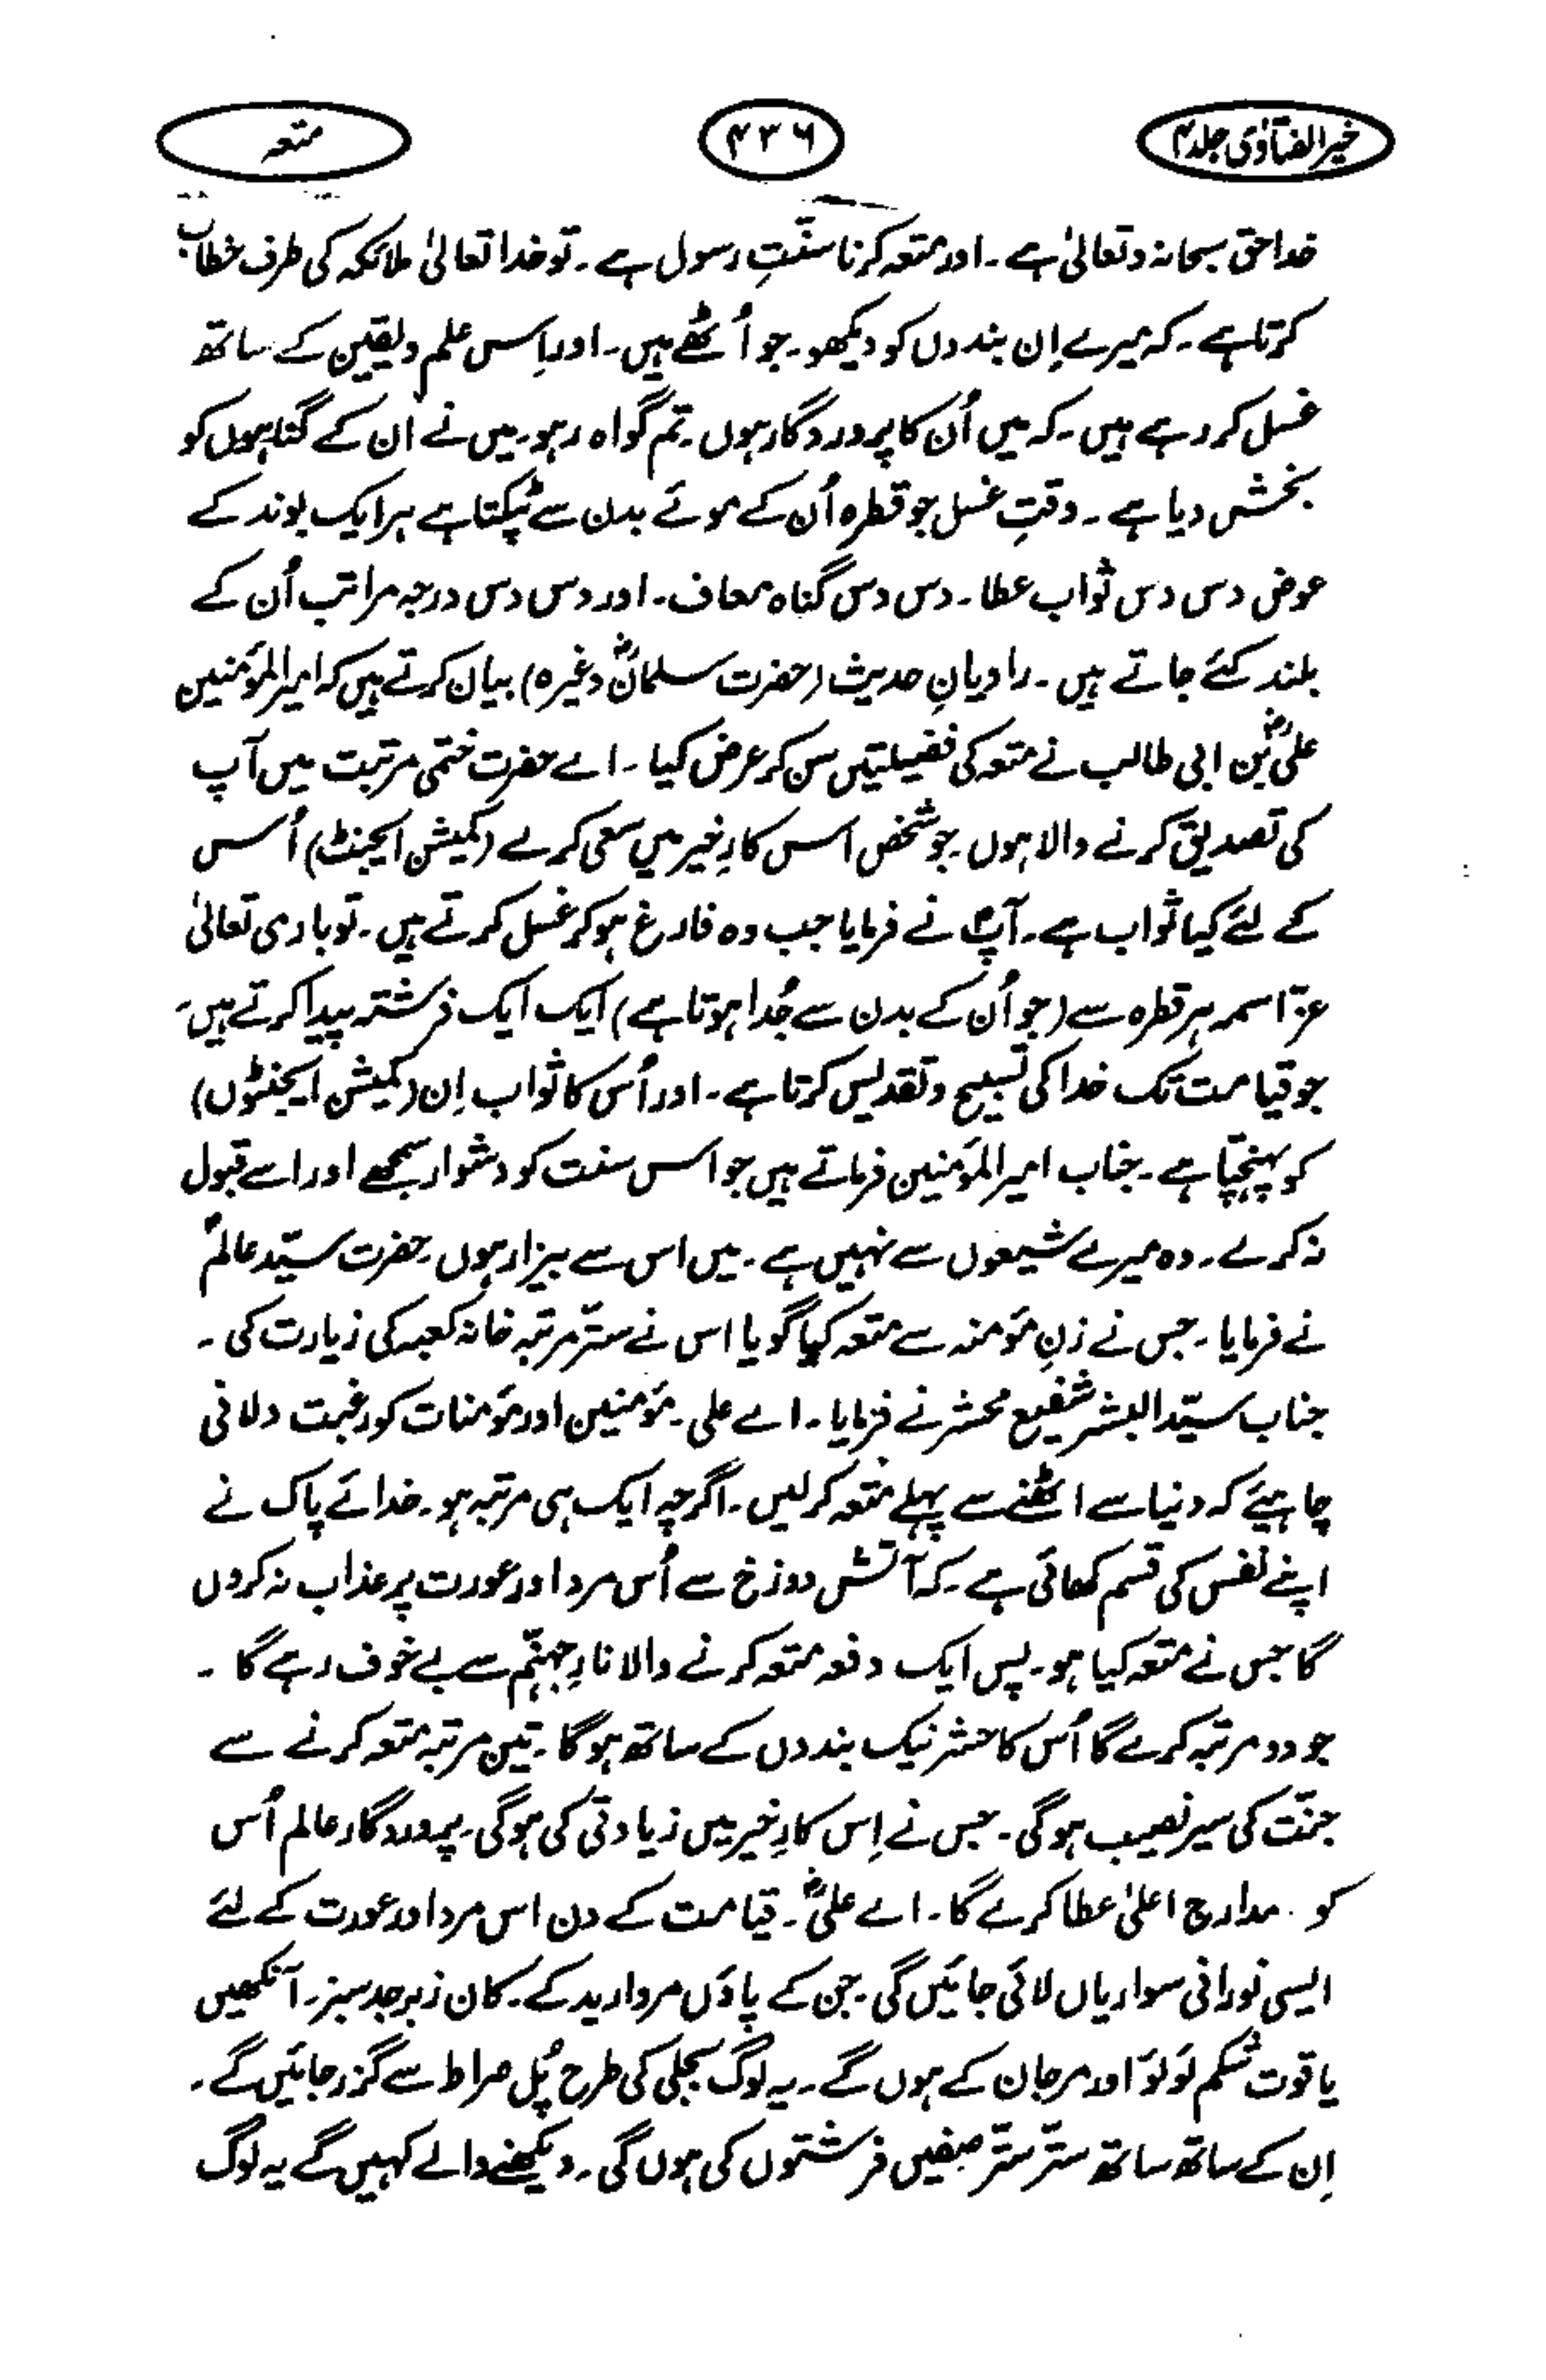 خیر الفتاوٰی جلد ۴
۴۳۶
متعہ
خدا حق سبحانہ وتعالیٰ ہے۔ اور متعہ کرنا سنّتِ رسول ہے۔ تو خدا تعالیٰ ملائکہ کی طرف خطاب
کرتا ہے۔ کہ میرے اِن بندوں کو دیکھو۔ جو اُٹھے ہیں۔ اور اِس علم ویقین کے ساتھ
غسل کر رہے ہیں۔ کہ میں اُن کا پروردگار ہوں۔ تم گواہ رہو۔ میں نے ان کے گناہوں کو
بخش دیا ہے۔ وقتِ غسل جو قطرہ اُن کے موئے بدن سے ٹپکتا ہے ہر ایک بوند کے
عوض دس دس ثواب عطا۔ دس دس گناہ معاف۔ اور دس دس درجہ مراتب اُن کے
بلند کئے جاتے ہیں۔ راویانِ حدیث (حضرت سلمانؓ وغیرہ) بیان کرتے ہیں کہ امیر المؤمنین
علیؓ بن ابی طالب نے متعہ کی فضیلتیں سن کر عرض کیا۔ اے حضرت ختمی مرتبت میں آپ
کی تصدیق کرنے والا ہوں۔ جو شخص اس کارِ خیر میں سعی کرے (کمیشن ایجنٹ) اُس
کے لئے کیا ثواب ہے۔ آپؐ نے فرمایا جب وہ فارغ ہو کر غسل کرتے ہیں۔ تو باری تعالیٰ
عزّ اسمہ ہر قطرہ سے (جو اُن کے بدن سے جُدا ہوتا ہے) ایک ایک فرشتہ پیدا کرتے ہیں۔
جو قیامت تک خدا کی تسبیح وتقدیس کرتا ہے۔ اور اُس کا ثواب اِن (کمیشن ایجنٹوں)
کو پہنچتا ہے۔ جناب امیر المؤمنین فرماتے ہیں جو اس سنت کو دشوار سمجھے اور اسے قبول
نہ کرے۔ وہ میرے شیعوں سے نہیں ہے۔ میں اس سے بیزار ہوں۔ حضرت سیّد عالمؐ
نے فرمایا۔ جس نے زنِ مؤمنہ سے متعہ کیا گویا اس نے ستّر مرتبہ خانہ کعبہ کی زیارت کی۔
جناب سیّد البشر شفیع محشر نے فرمایا۔ اے علی۔ مؤمنین اور مؤمنات کو رغبت دلانی
چاہیئے کہ دنیا سے اٹھنے سے پہلے متعہ کر لیں۔ اگرچہ ایک ہی مرتبہ ہو۔ خدائے پاک نے
اپنے نفس کی قسم کھائی ہے۔ کہ آتش دوزخ سے اُس مرد اور عورت پر عذاب نہ کروں
گا جس نے متعہ کیا ہو۔ پس ایک دفعہ متعہ کرنے والا نارِ جہنّم سے بے خوف رہے گا۔
جو دو مرتبہ کرے گا اُس کا حشر نیک بندوں کے ساتھ ہو گا۔ تین مرتبہ متعہ کرنے سے
جنّت کی سیر نصیب ہو گی۔ جس نے اِس کارِ خیر میں زیادتی کی ہو گی۔ پروردگار عالم اُس
کو مدارج اعلیٰ عطا کرے گا۔ اے علیؓ۔ قیامت کے دن اس مرد اور عورت کے لئے
ایسی نورانی سواریاں لائی جائیں گی۔ جن کے پاؤں مروارید کے۔ کان زبرجد سبز۔ آنکھیں
یاقوت شکم لؤلؤ اور مرجان کے ہوں گے۔ یہ لوگ بجلی کی طرح پُل صراط سے گزر جائیں گے۔
اِن کے ساتھ ساتھ ستّر ستّر صفیں فرشتوں کی ہوں گی۔ دیکھنے والے کہیں گے یہ لوگ